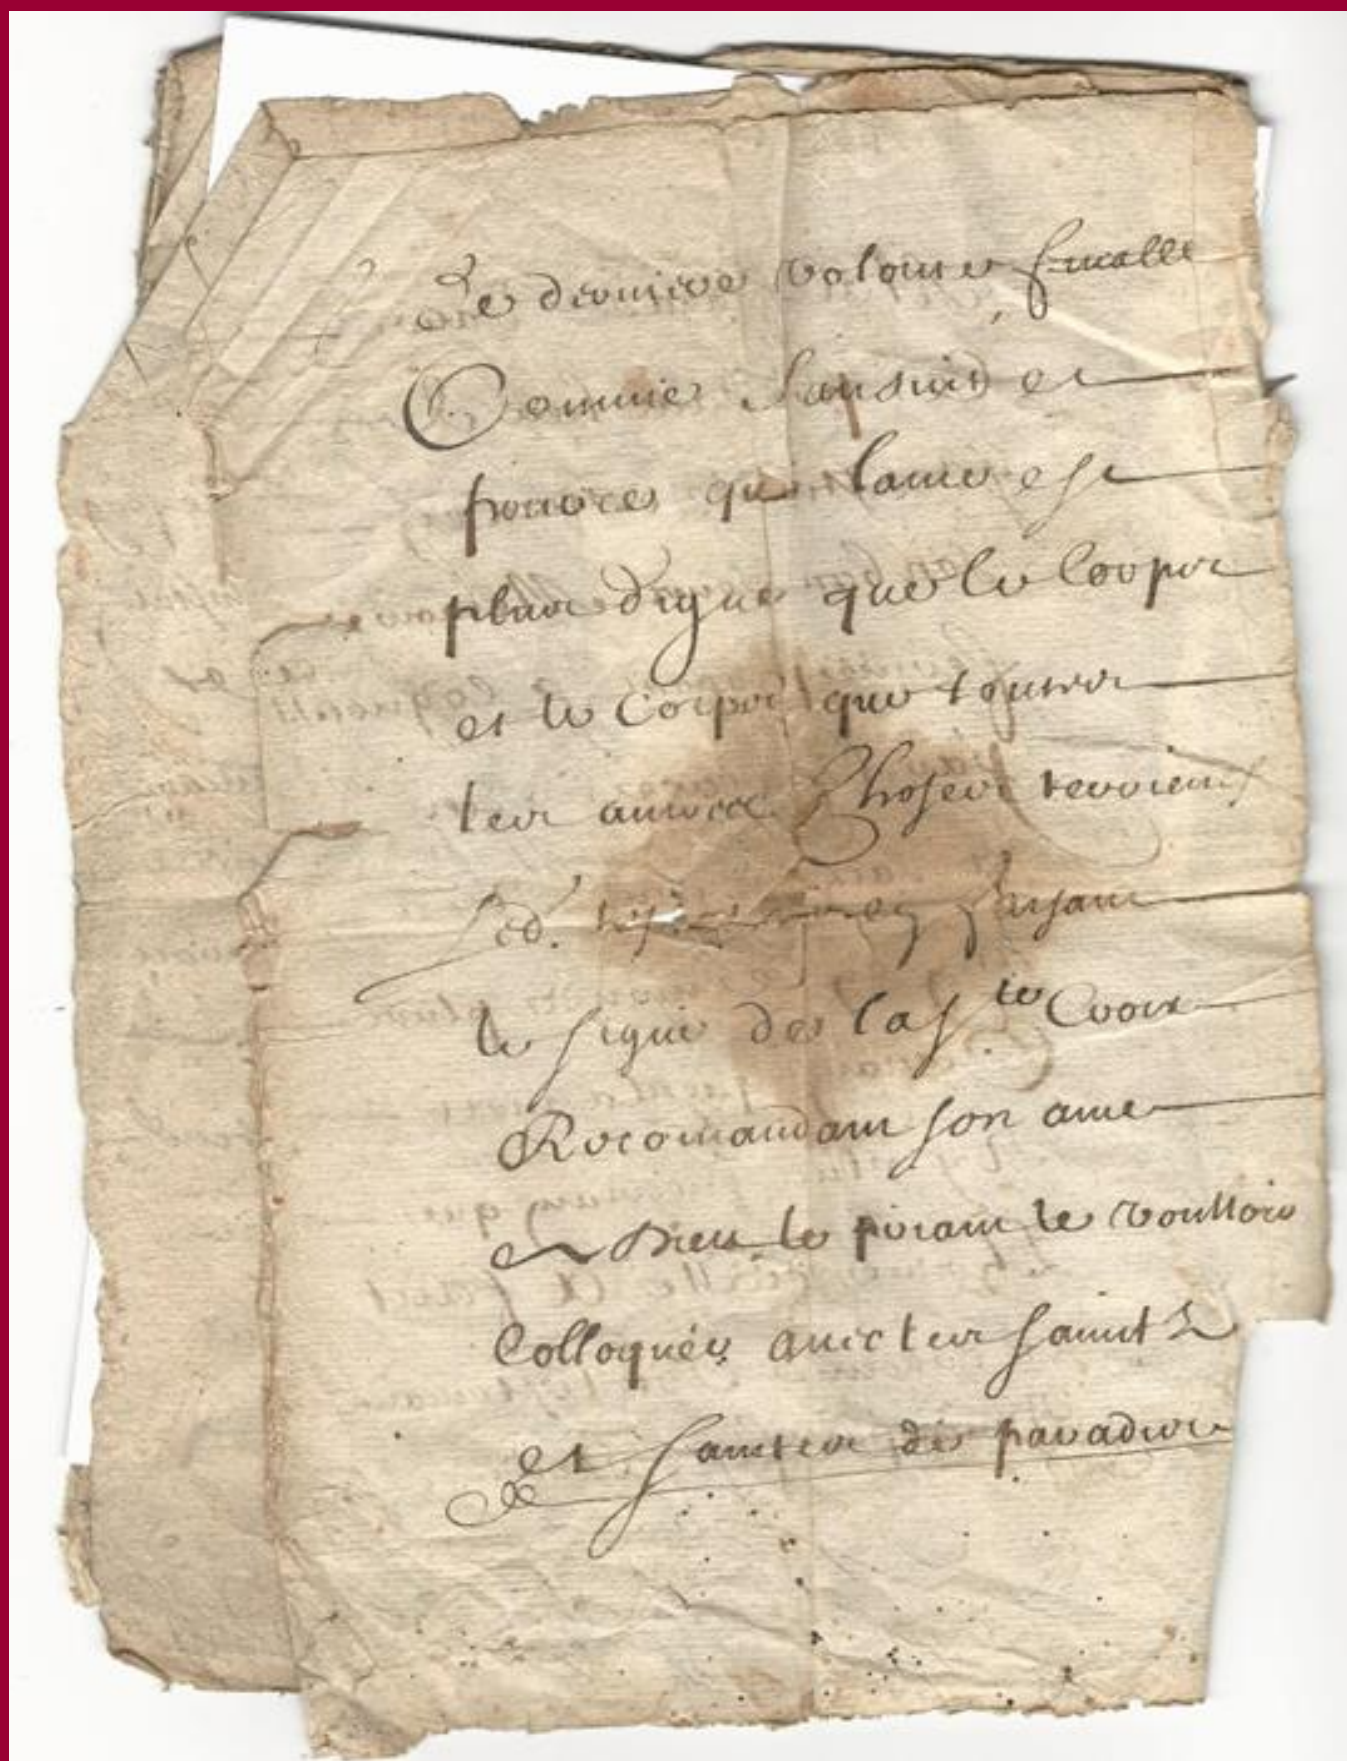 De derniere volonte finalle
Comme sansuit et
pource que lame est
plus digne que le Corps
et le Corps que toutes
les autres Choses terriens
Led. faisant
le signe de la s.te Croix
Recomandant son ame
a Dieu le priant le voulloir
Colloquer avec les saints
et saintes de paradis